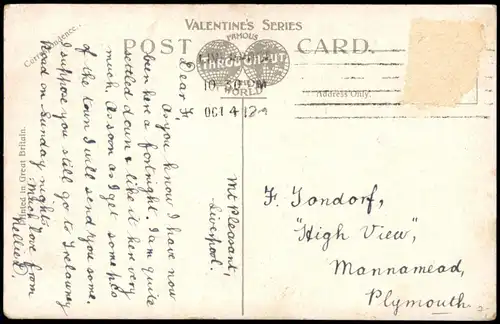 VALENTINE'S SERIES
FAMOUS
THROUGHOUT
THE WORLD
POST CARD.
Correspondence.
Address Only.
Printed in Great Britain.
10. 30 M
OCT 4 12
Mt Pleasant,
Liverpool.
Dear F,
As you know I have now
been here a fortnight. I am quite
settled down & like it here very
much. As soon as I get some p.cs
of the town I will send you some.
I suppose you still go to Trelawney
Road on Sunday nights.
Much love from
Nellie.
F. Tondorf,
"High View",
Mannamead,
Plymouth.